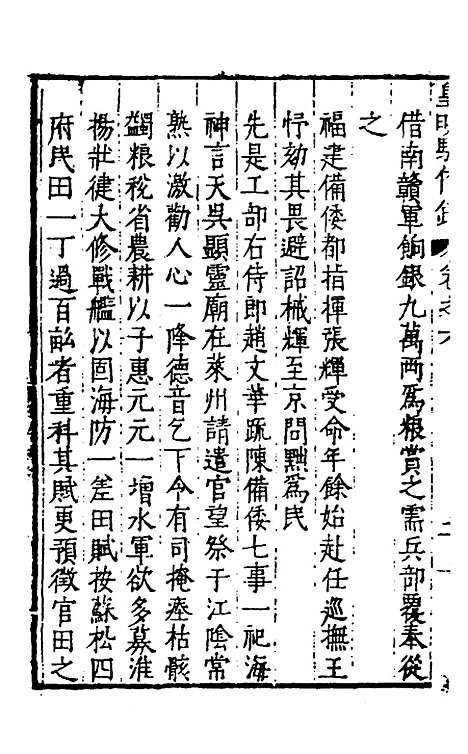 借南贛軍餉銀九萬两爲粮賞之需兵部覆奉從
之
福建備倭都指揮張輝受命年餘始赴任巡撫王
忬劾其畏避詔械輝至京問黜爲民
先是工部右侍郎趙文華䟽陳備倭七事一祀海
神言天吳顯靈廟在萊州請遣官望祭于江陰常
熟以激勸人心一降德音乞下令有司掩瘞枯骸
蠲粮稅省農耕以子惠元元一增水軍欲多募淮
揚壯徤大修戰艦以固海防一差田賦按蘇松四
府民田一丁過百畝者重科其賦更預徵官田之